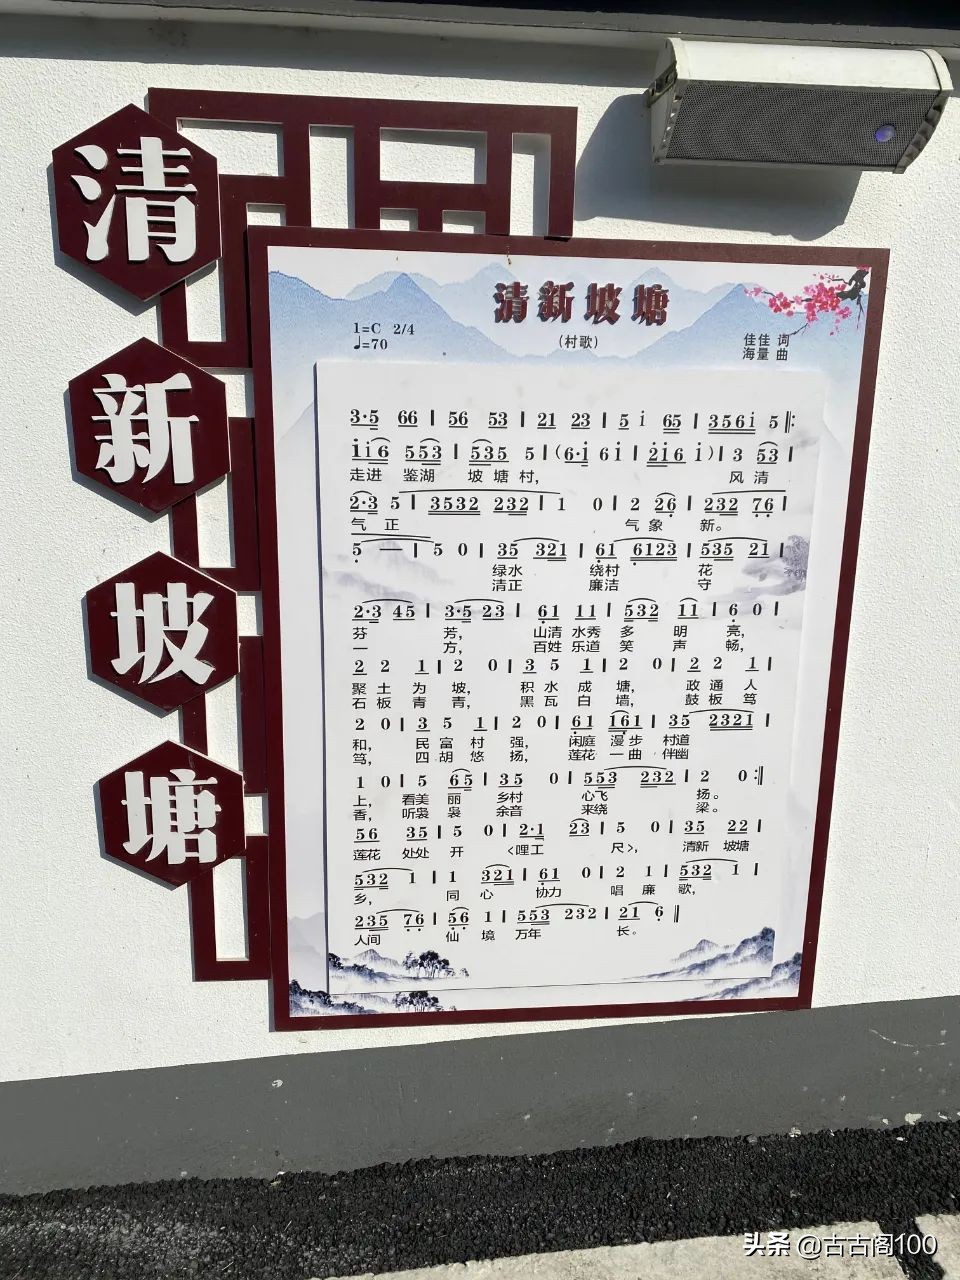 清
新
坡
塘
清新坡塘
(村歌)
1=C 2/4
♩=70
佳佳 词
海量 曲
3·5 66 | 56 53 | 21 23 | 5 i 65 | 356i 5 ‖:
ii6 553 | 535 5 | (6·i 6i | 2i6 i) | 3 53 |
走进 鉴湖 坡塘村, 风清
2·3 5 | 3532 232 | 1 0 | 2 26 | 232 76 |
气 正 气象 新。
5 — | 5 0 | 35 321 | 61 6123 | 535 21 |
绿水 绕村 花
清正 廉洁 守
2·3 45 | 3·5 23 | 61 11 | 532 11 | 6 0 |
芬 芳, 山清 水秀 多 明 亮,
一 方, 百姓 乐道 笑 声 畅,
2 2 1 | 2 0 | 3 5 1 | 2 0 | 2 2 1 |
聚土为坡, 积水成塘, 政通人
石板青青, 黑瓦白墙, 鼓板笃
2 0 | 3 5 1 | 2 0 | 61 161 | 35 2321 |
和, 民富村强, 闲庭 漫步 村道
笃, 四胡悠扬, 莲花 一曲 伴幽
1 0 | 5 65 | 35 0 | 553 232 | 2 0 :‖
上, 看美 丽 乡村 心飞 扬。
香, 听袅 袅 余音 来绕 梁。
56 35 | 5 0 | 2·1 23 | 5 0 | 35 22 |
莲花 处处 开 <哩工 尺>, 清新 坡塘
532 1 | 1 321 | 61 0 | 2 1 | 532 1 |
乡, 同 心 协力 唱 廉 歌,
235 76 | 56 1 | 553 232 | 21 6 ‖
人间 仙 境 万年 长。
头条 @古古阁100